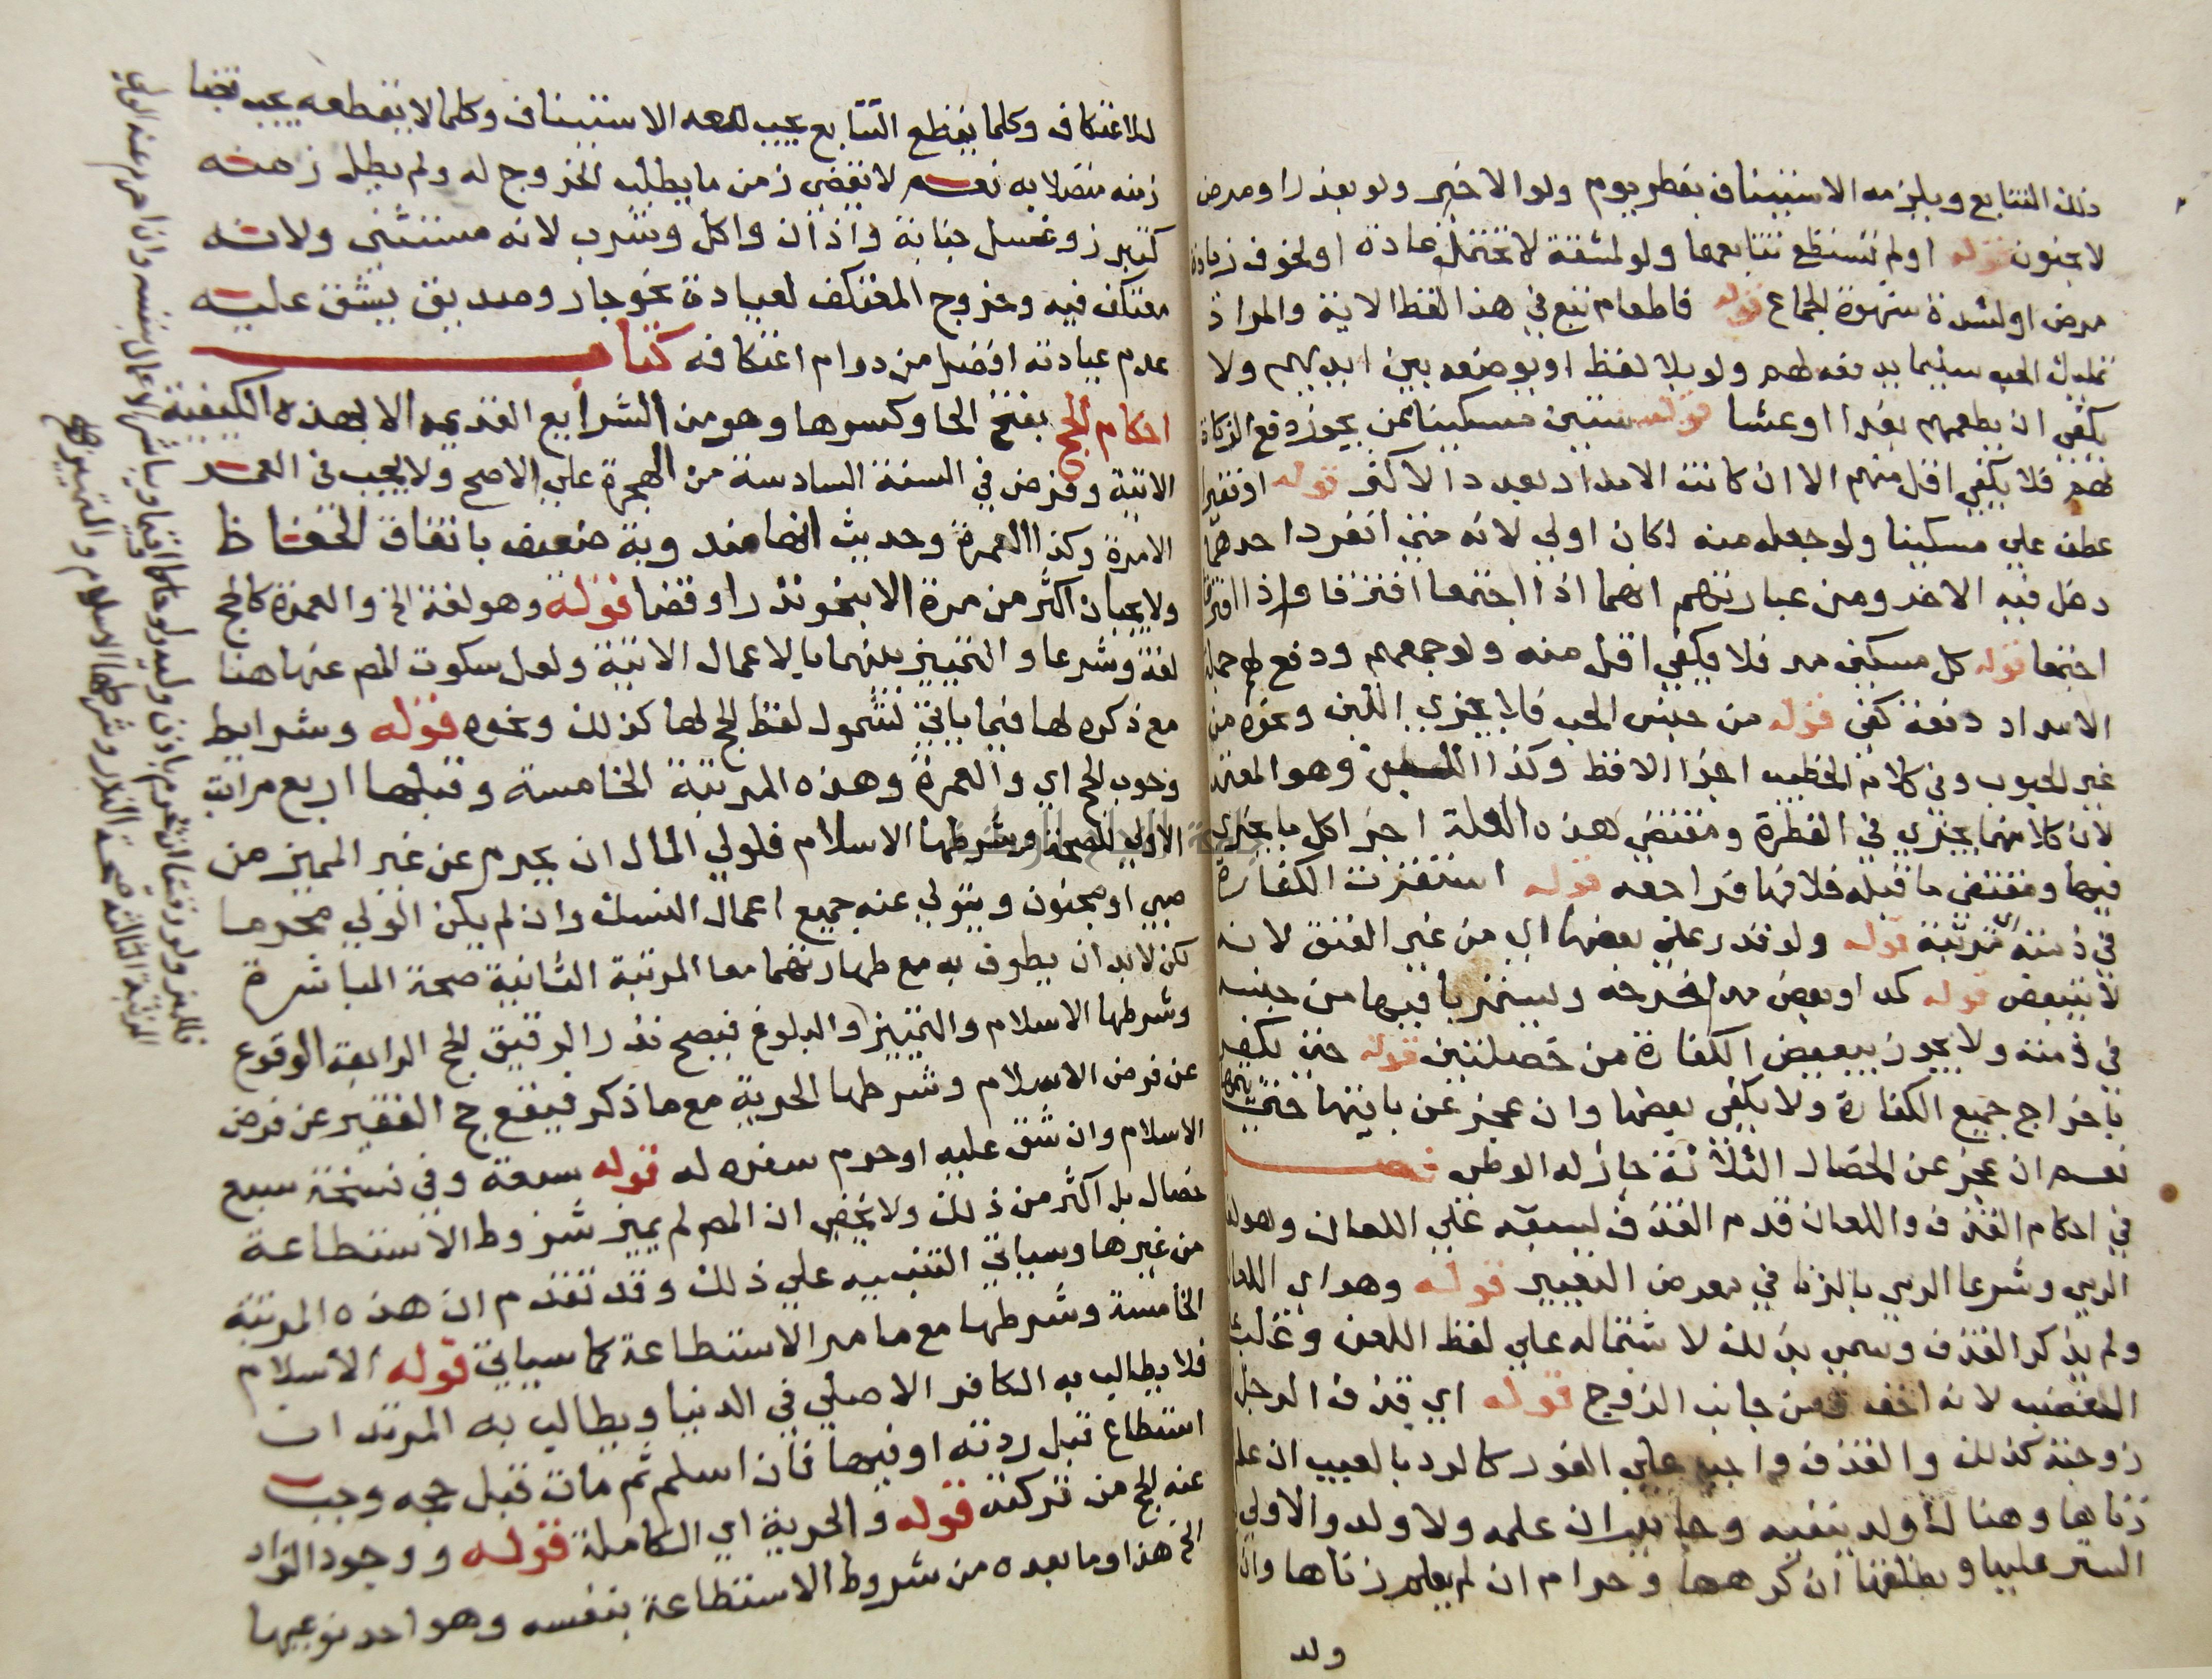 ذلك التتابع ويلزمه الاستيناف بفطر يوم ولو الاخير ولو بعذر او مرض
لا بجنون قوله او لم تستطع تتابعهما ولو لمشقة لا تحتمل عادة او لخوف زيادة
مرض او لشدة شهوة الجماع قوله فاطعام تبع في هذا لفظ الاية والمراد
تمليك الحب سليما يدفعه لهم ولو بلا لفظ او بوضعه بين ايديهم ولا
يكفي ان يطعمهم بغدا او عشا قوله ستين مسكينا ممن يجوز دفع الزكاة
لهم فلا يكفي اقل منهم الا ان كانت الامداد بعدد الاكفر قوله او فقيرا
عطف على مسكينا ولو جعله منه لكان اولي لانه متى انفرد احدهما
دخل فيه الاخر ومن عبارتهم انهما اذا اجتمعا افترقا واذا افترقا
اجتمعا قوله كل مسكين مد فلا يكفي اقل منه ولو جمعهم ودفع لهم جملة
الامداد دفعة كفى قوله من جنس الحب فلا يجزي اللبن ونحوه من
غير الحبوب وفي كلام الخطيب اجزا الاقط وكذا اللبن وهو المعتمد
لان كلا منهما يجزي في الفطرة ومقتضى هذه العلة اجزا كل ما يجزي
فيها ومقتضى ما قبله خلافه فراجعه قوله استقرت الكفارة
في ذمته اي مرتبة قوله ولو قدر على بعضها اي من غير العتق لانه
لا يتبعض قوله كمد او بعض مد اخرجه ويستمر باقيها من جنسه
في ذمته ولا يجوز تبعيض الكفارة من خصلتين قوله حتى يكفر
باخراج جميع الكفارة ولا يكفي بعضها وان عجز عن باقيها حتى يتمها
نعم ان عجز عن الخصال الثلاثة جاز له الوطي فصل
في احكام القذف واللعان قدم القذف لسبقه على اللعان وهو لغة
الرمي وشرعا الرمي بالزنا في معرض التعيير قوله وهو اي اللعان
ولم يذكر القذف وسمي بذلك لاشتماله على لفظ اللعن وغلب على
الغضب لانه اخف ومن جانب الزوج قوله اي قذف الرجل
زوجته كذلك والقذف واجب على الفور كالرد بالعيب ان علم
زناها وهناك ولد ينفيه وجايز ان علمه ولا ولد والاولي
الستر عليها ويطلقها ان كرهها وحرام ان لم يعلم زناها وان
ولد
للاعتكاف وكلما يقطع التتابع يجب معه الاستيناف وكلما لا يقطعه يجب قضا
زمنه متصلا به نعم لا يقضى زمن ما يطلب الخروج له ولم يطل زمنه
كتبرز وغسل جنابة واذان واكل وشرب لانه مستثنى ولانه
معتكف فيه وخروج المعتكف لعيادة نحو جار وصديق يشق عليه
عدم عيادته افضل من دوام اعتكافه كتاب
احكام الحج بفتح الحا وكسرها وهو من الشرايع القديمة الا بهذه الكيفية
الاتية وفرض في السنة السادسة من الهجرة على الاصح ولا يجب في العمر
الا مرة وكذا العمرة وحديث انها مندوبة ضعيف باتفاق الحفاظ
ولا يجبان اكثر من مرة الا بنحو نذر او قضا قوله وهو لغة الخ والعمرة كالحج
لغة وشرعا والتمييز بينهما بالاعمال الاتية ولعل سكوت المص عنها هنا
مع ذكره لها فيما ياتي لشمول لفظ الحج لها كذلك ونحوه قوله وشرايط
وجوب الحج اي والعمرة وهذه المرتبة الخامسة وقبلها اربع مراتب
الاولى الصحة وشرطها الاسلام فلولي المال ان يحرم عن غير المميز من
صبي او مجنون ويتولى عنه جميع اعمال النسك وان لم يكن الولي محرما
لكن لا بد ان يطوف به مع طهارتهما معا المرتبة الثانية صحة المباشرة
وشرطها الاسلام والتمييز والبلوغ فيصح نذر الرقيق الحج الرابعة الوقوع
عن فرض الاسلام وشرطها الحرية مع ما ذكر فيقع حج الفقير عن فرض
الاسلام وان شق عليه او حرم سفره له قوله سبعة وفي نسخة سبع
خصال بل اكثر من ذلك ولا يخفى ان المص لم يميز شروط الاستطاعة
من غيرها وسياتي التنبيه على ذلك وقد تقدم ان هذه المرتبة
الخامسة وشرطها مع ما مر الاستطاعة كما سياتي قوله الاسلام
فلا يطالب به الكافر الاصلي في الدنيا ويطالب به المرتد ان
استطاع قبل ردته او فيها فان اسلم ثم مات قبل حجه وجب
عنه الحج من تركته قوله والحرية اي الكاملة قوله ووجود الزاد
الخ هذا وما بعده من شروط الاستطاعة بنفسه وهو احد نوعيها
المرتبة الثالثة صحة النذر وشرطها الاسلام والتمييز الخ